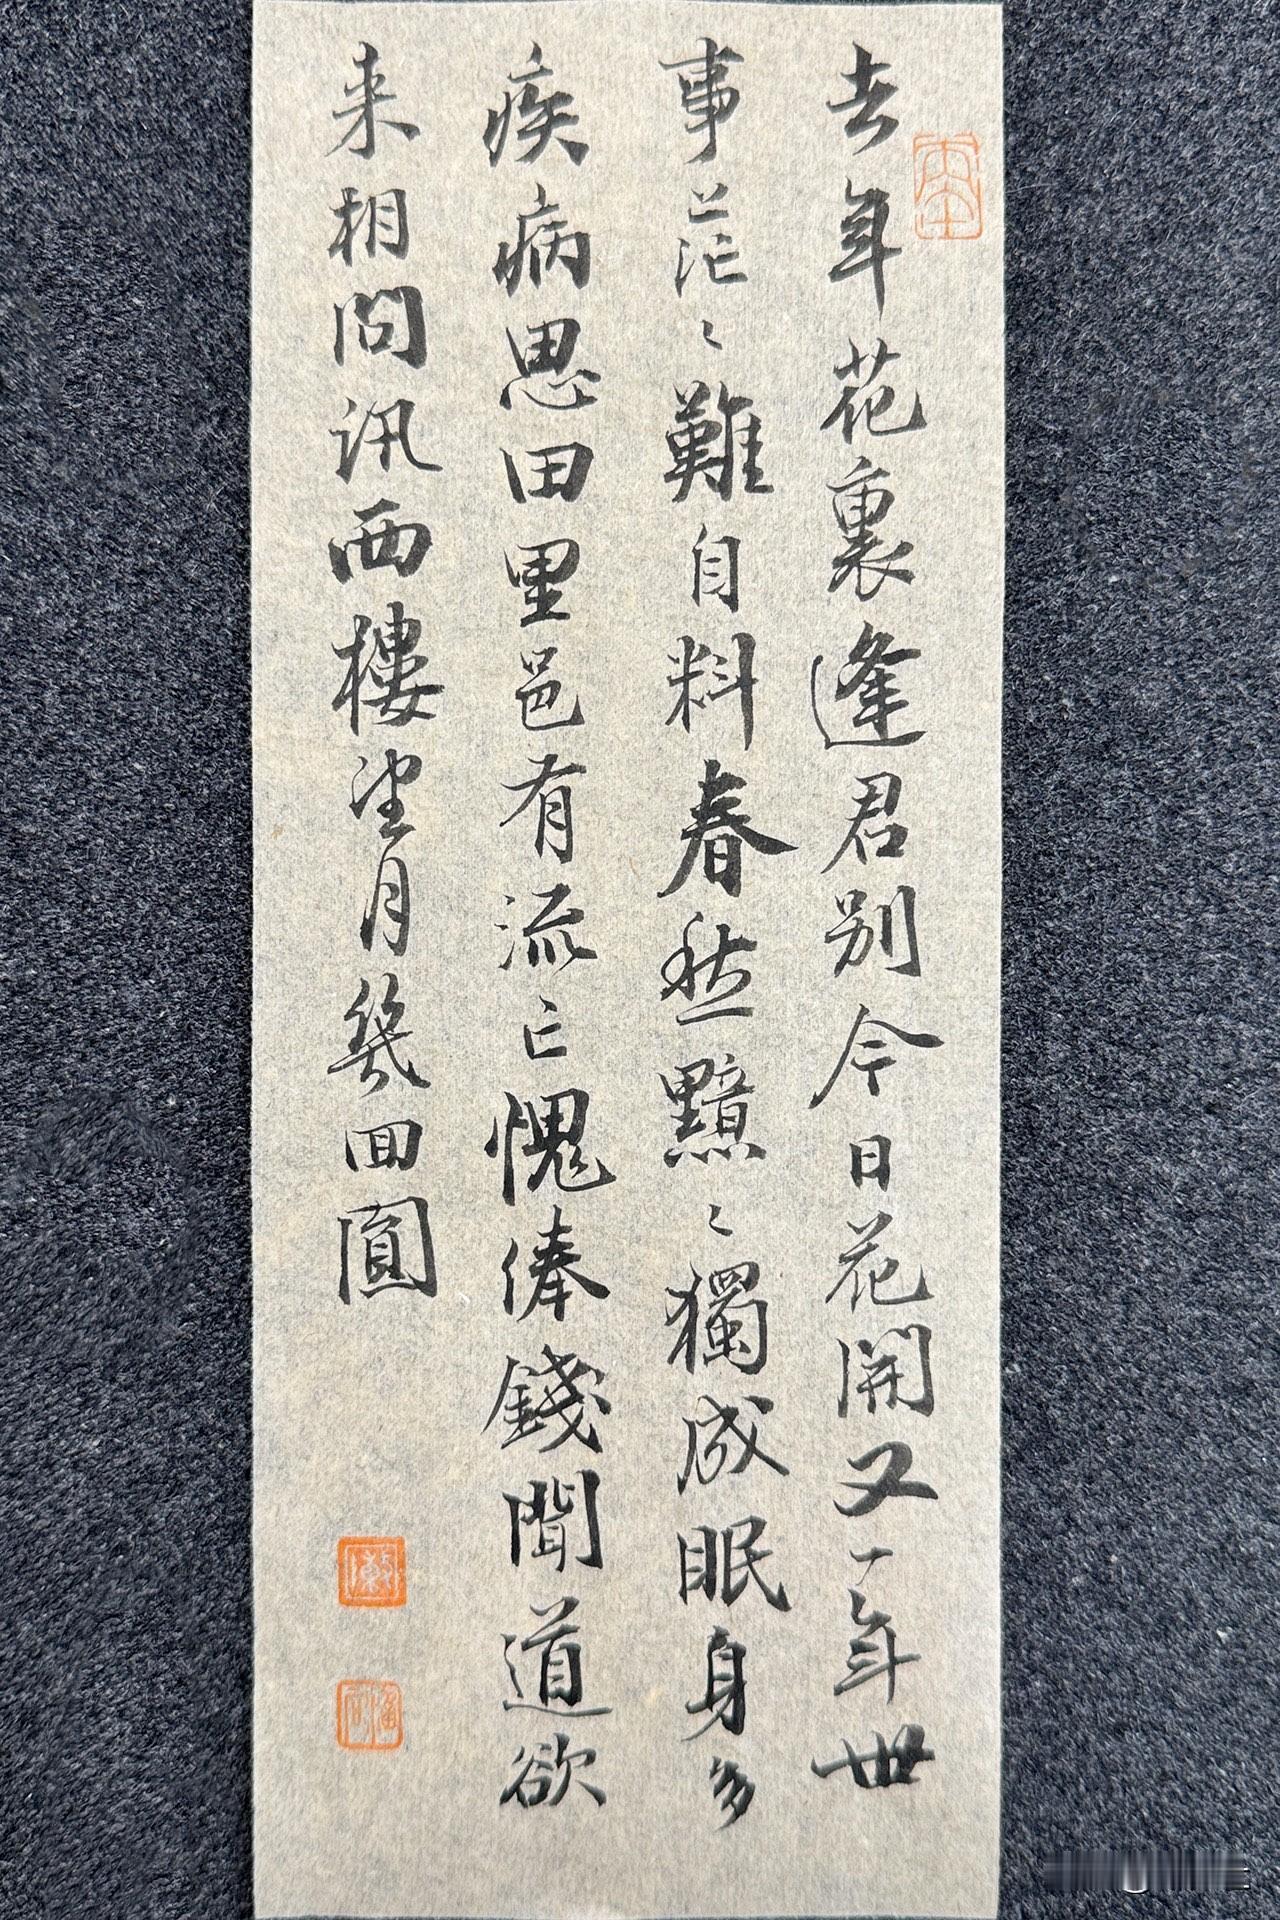 去年花裏逢君別今日花開又一年世
事茫〻難自料春愁黯〻獨成眠身多
疾病思田里邑有流亡愧俸錢聞道欲
来相問訊西樓望月幾回圓